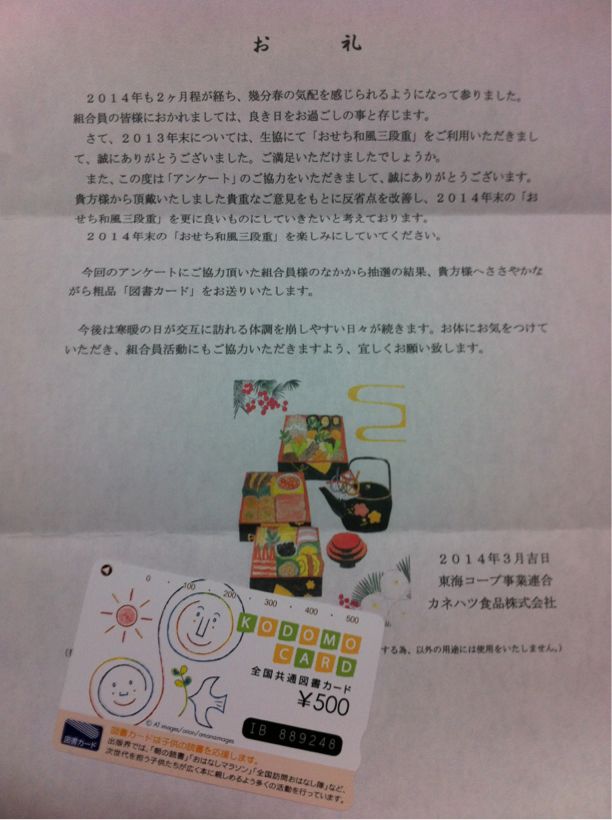 お　礼
２０１４年も２ヶ月程が経ち、幾分春の気配を感じられるようになって参りました。
組合員の皆様におかれましては、良き日をお過ごしの事と存じます。
さて、２０１３年末については、生協にて「おせち和風三段重」をご利用いただきまし
て、誠にありがとうございました。ご満足いただけましたでしょうか。
また、この度は「アンケート」のご協力をいただきまして、誠にありがとうございます。
貴方様から頂戴いたしました貴重なご意見をもとに反省点を改善し、２０１４年末の「お
せち和風三段重」を更に良いものにしていきたいと考えております。
２０１４年末の「おせち和風三段重」を楽しみにしていてください。
今回のアンケートにご協力頂いた組合員様のなかから抽選の結果、貴方様へささやかな
がら粗品「図書カード」をお送りいたします。
今後は寒暖の日が交互に訪れる体調を崩しやすい日々が続きます。お体にお気をつけて
いただき、組合員活動にもご協力いただきますよう、宜しくお願い致します。
２０１４年３月吉日
東海コープ事業連合
カネハツ食品株式会社
する為、以外の用途には使用をいたしません。）
0 100 200 300 400 500
KODOMO
CARD
全国共通図書カード
¥500
© A1 images/orion/amanaimages
IB 889248
図書カード
図書カードは子供の読書を応援します。
出版界では、「朝の読書」「おはなしマラソン」「全国訪問おはなし隊」など、
次世代を担う子供たちが広く本に親しめるよう多くの活動を行っています。